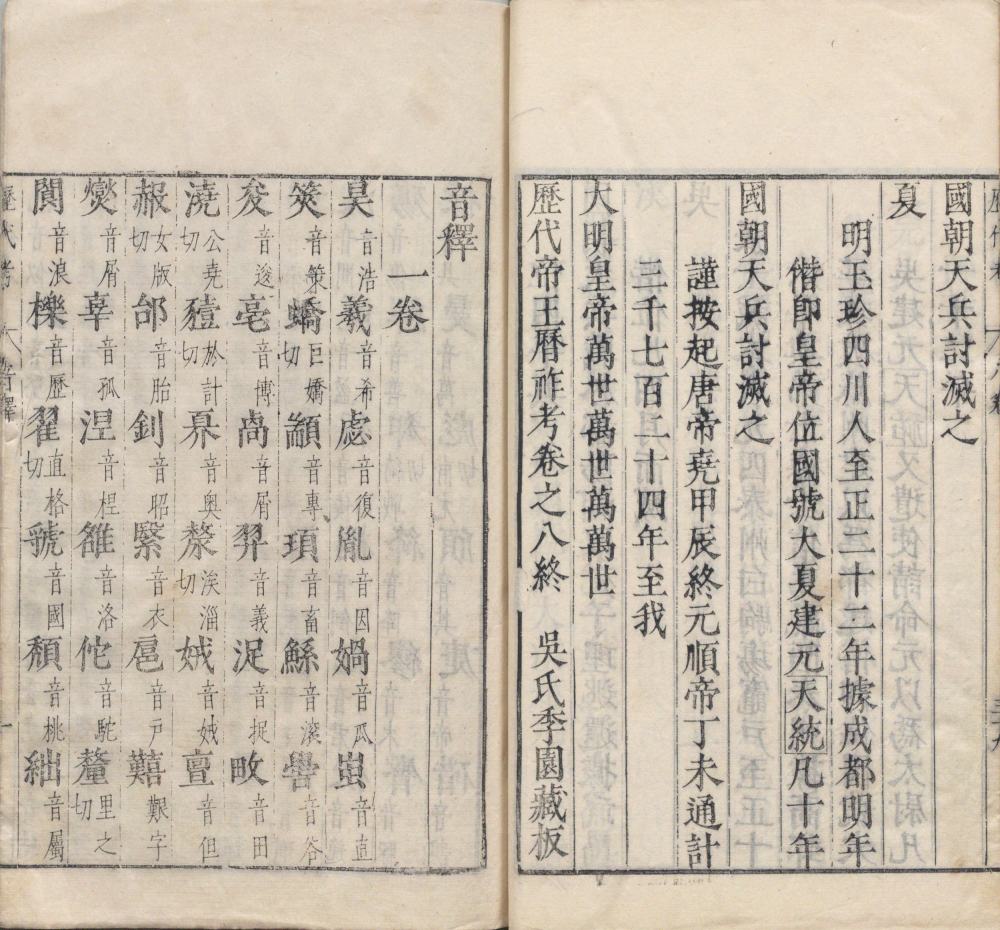 國朝天兵討滅之
夏
明玉珍四川人至正二十三年據成都明年
僭即皇帝位國號大夏建元天統凡十年
國朝天兵討滅之
謹按起唐帝堯甲辰終元順帝丁未通計
三千七百二十四年至我
大明皇帝萬世萬世萬萬世
歷代帝王曆祚考卷之八終 吳氏季園藏板
音釋
一卷
昊音浩羲音希虙音復胤音因媧音瓜蚩音直
筴音策蟜巨嬌切顓音專頊音畜鯀音滾嚳音谷
夋音逡亳音博卨音屑羿音義浞音捉畋音田
澆公堯切豷於計切奡音奧漦俟淄切娀音娀亶音但
赧女版切邰音胎釗音昭緊音衣扈音戶囏艱字
爕音屑辜音孤涅音桯雒音洛佗音駝釐里之切
閬音浪櫟音歷翟直格切虢音國頹音桃紬音屬